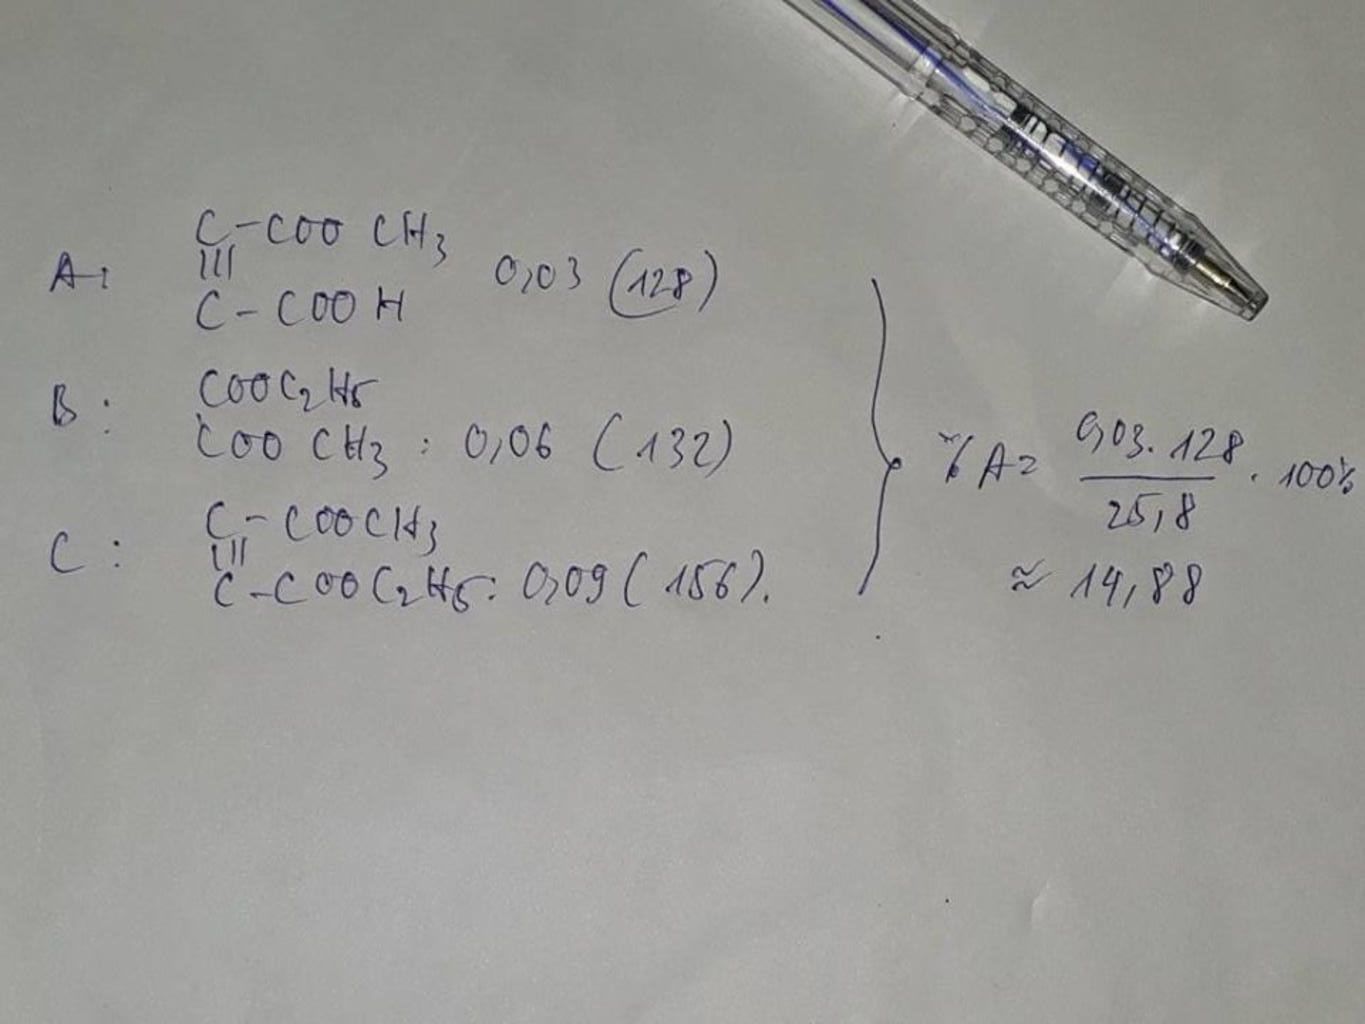 A:
C-COO CH3
|||
C-COOH
0,03 (128)
B:
COOC2H5
COO CH3 : 0,06 (132)
C:
C-COOCH3
|||
C-COOC2H5: 0,09 (156).
% A = 0,03.128 / 25,8 . 100%
≈ 14,88